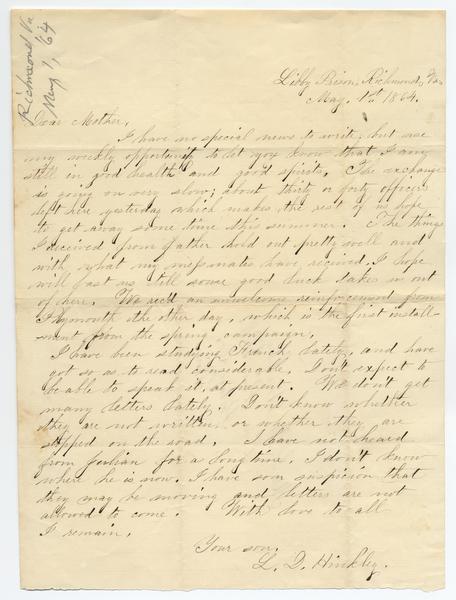 Richmond Va
May 1, '64
Libby Prison, Richmond, Va.
May 1st 1864.
Dear Mother,
I have no special news to write, but use
my weekly opportunity to let you know that I am
still in good health and good spirits. The exchange
is going on very slow; about thirty or forty officers
left here yesterday which makes the rest of us hope
to get away some time this summer. The things
I received from father hold out pretty well and
with what my messmates have received, I hope
will last us till some good luck takes us out
of here. We rec'd an reinforcement from
Plymouth the other day, which is the first install-
ment from the spring campaign.
I have been studying French, lately, and have
got so as to read considerable. Don't expect to
be able to speak it, at present. We don't get
many letters lately. Don't know whether
they are not written or whether they are
stopped on the road. I have not heard
from Julian for a long time. I don't know
where he is now. I have some suspicion that
they may be moving and letters are not
allowed to come. With love to all
I remain,
Your son,
L. D. Hinkley.